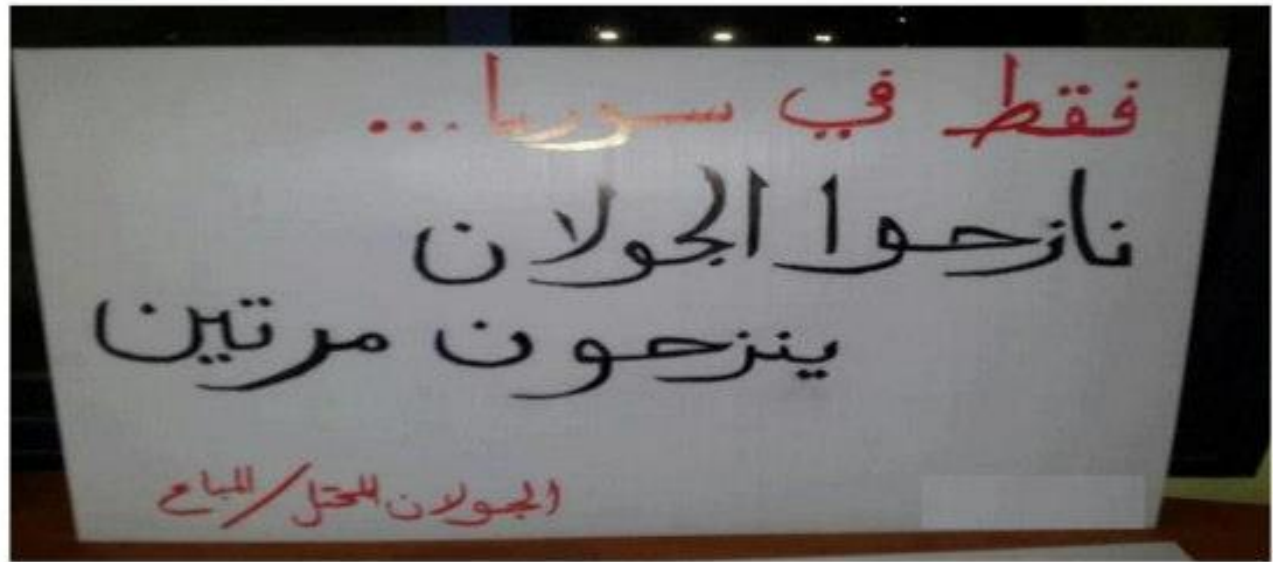 فقط في سوريا...
نازحوا الجولان
ينزحون مرتين
الجولان المحتل/المباع